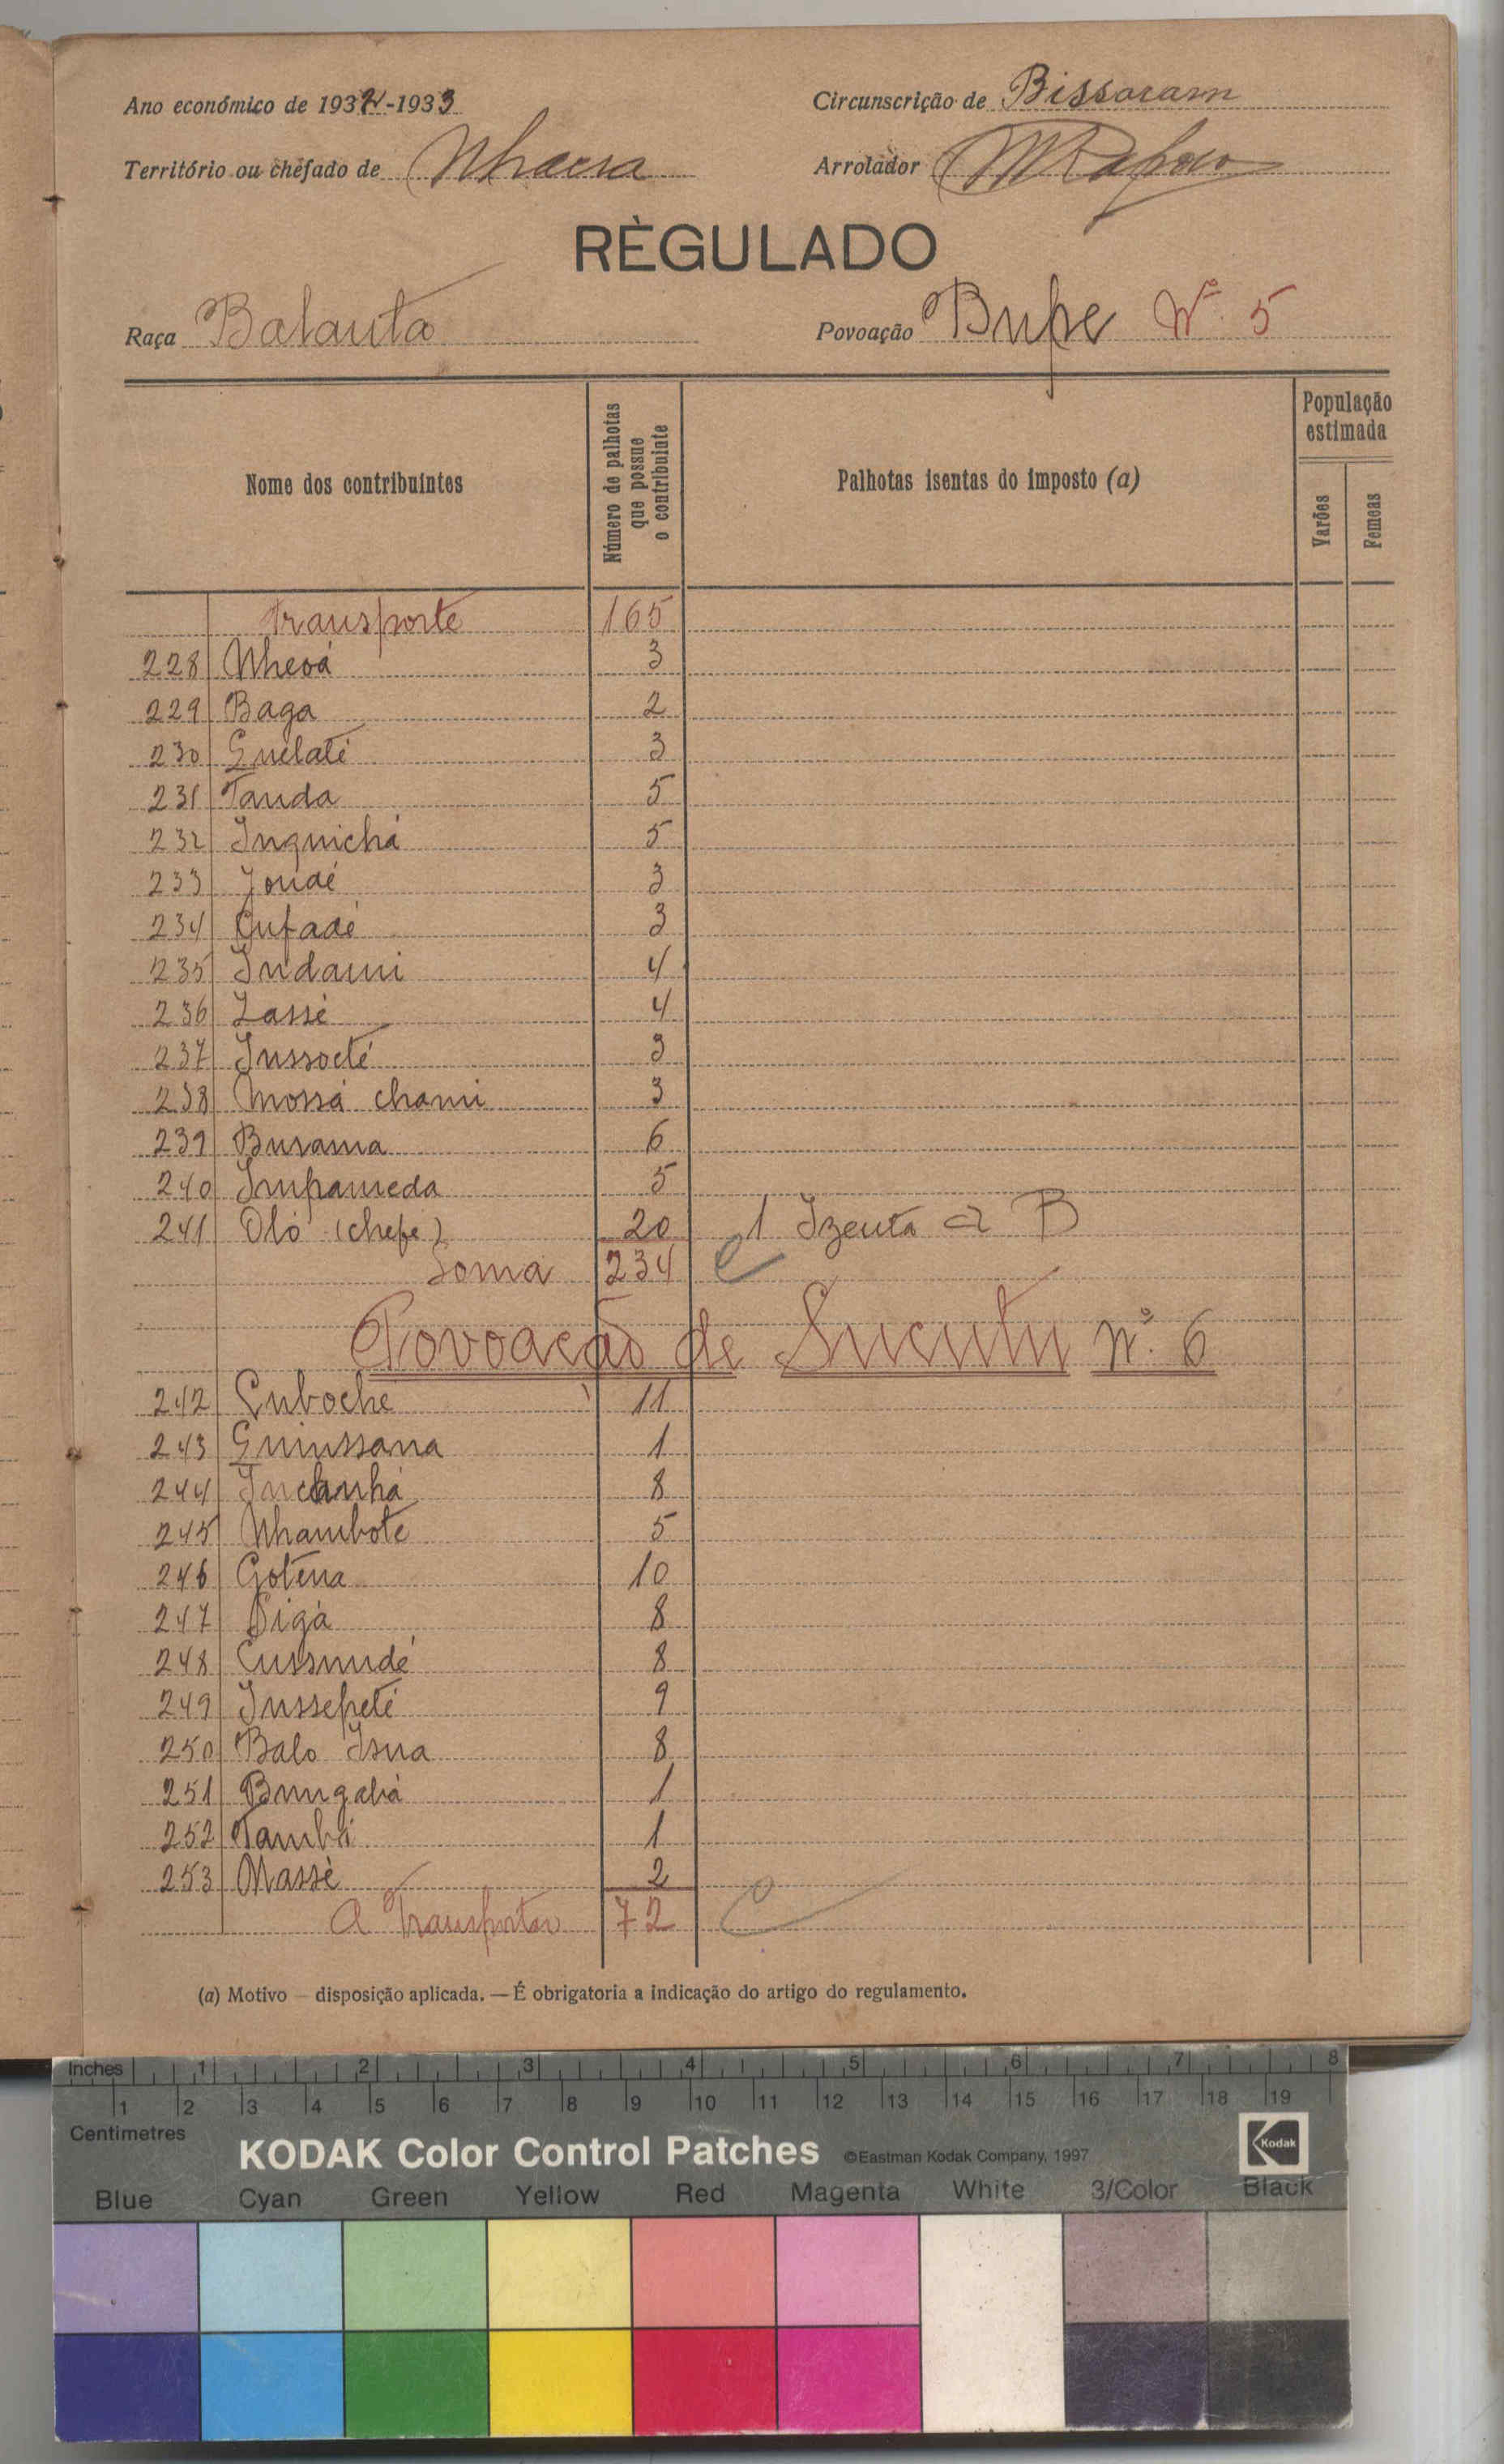 Ano económico de 1932-1933
Circunscrição de Bissoram
Território ou chefado de Nhaera
Arrolador
RÈGULADO
Raça Balanta
Povoação Bupe Nº 5
Nome dos contribuintes
Número de palhotas que possue o contribuinte
Palhotas isentas do imposto (a)
População estimada
Varões
Femeas
Transporte 165
228 Nhevá 3
229 Baga 2
230 Guelaté 3
231 Tanda 5
232 Inquichá 5
233 Joudé 3
234 Cufadé 3
235 Indami 4
236 Lassé 4
237 Jussocté 3
238 Mossá chami 3
239 Burama 6
240 Impameda 5
241 Oló (chefe) 20 1 Izenta a B
Soma 234
Povoação de Sucutu nº 6
242 Cuboche 11
243 Guinssana 1
244 Inchanhá 8
245 Nhambote 5
246 Gotena 10
247 Digá 8
248 Cussundé 8
249 Jusseheté 9
250 Balo Isna 8
251 Bungabá 1
252 Tambá 1
253 Massé 2
A Transportar 72
(a) Motivo — disposição aplicada. — É obrigatoria a indicação do artigo do regulamento.
Inches 1 2 3 4 5 6 7 8
1 2 3 4 5 6 7 8 9 10 11 12 13 14 15 16 17 18 19
Centimetres
KODAK Color Control Patches ©Eastman Kodak Company, 1997 Kodak
Blue Cyan Green Yellow Red Magenta White 3/Color Black